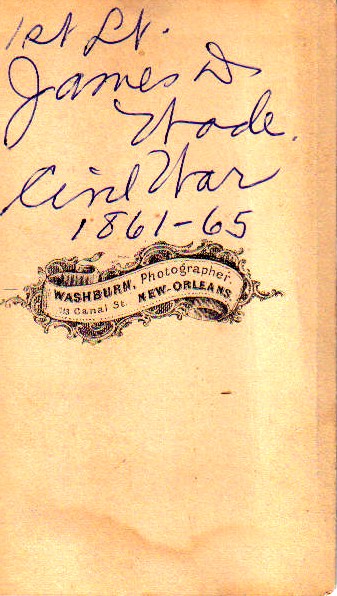 1st Lt.
James D
Wade.
Civil War
1861-65
WASHBURN, Photographer.
113 Canal St. NEW-ORLEANS